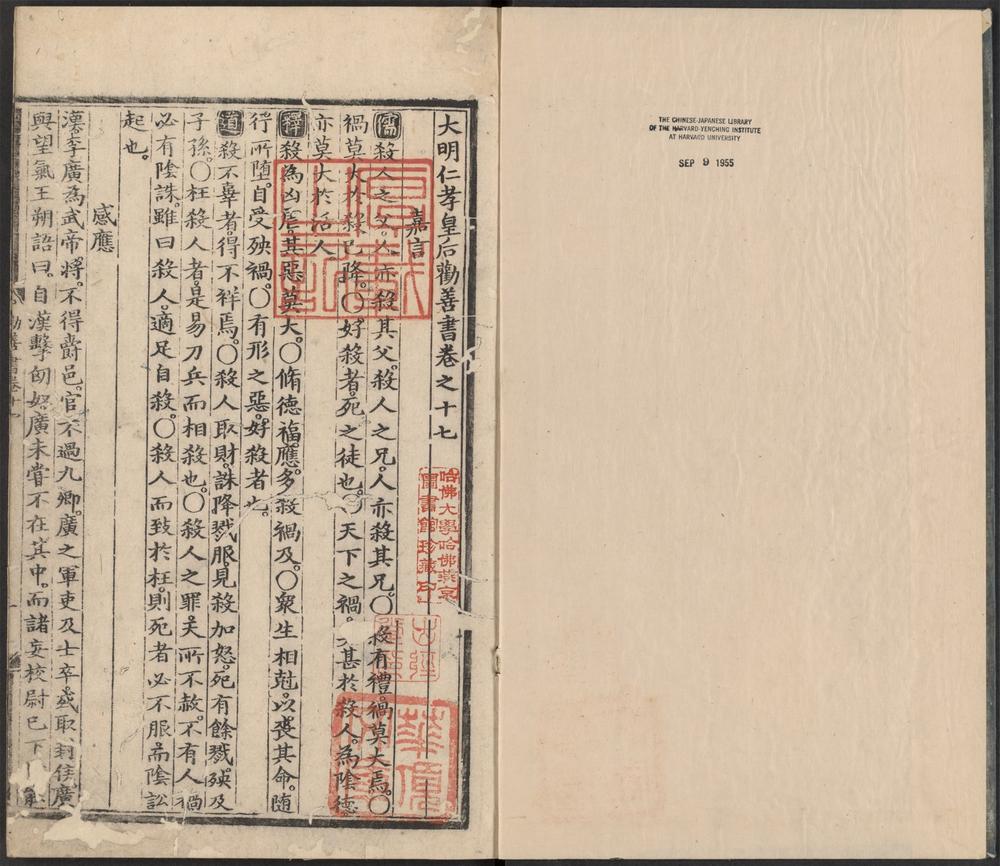 大明仁孝皇后勸善書卷之十七
嘉言
儒殺人之父人亦殺其父殺人之兄人亦殺其兄〇殺有禮禍莫大焉〇
禍莫大於殺已降〇好殺者死之徒也〇天下之禍莫甚於殺人為陰德
亦莫大於活人
釋殺為凶虐其惡莫大〇脩德福應多殺禍及〇衆生相尅以喪其命随
行所墮自受殃禍〇有形之惡好殺者也
道殺不辜者得不祥焉〇殺人取財誅降戮服見殺加怒死有餘戮殃及
子孫〇枉殺人者是易刀兵而相殺也〇殺人之罪天所不赦不有人禍
必有陰誅雖曰殺人適足自殺〇殺人而致於枉則死者必不服而陰訟
起也
感應
漢李廣為武帝將不得爵邑官不過九卿廣之軍吏及士卒或取封侯廣
與望氣王朔語曰自漢擊匈奴廣未嘗不在其中而諸妄校尉已下
勸善書卷十
哈佛大學哈佛燕京
圖書館珍藏印
THE CHINESE-JAPANESE LIBRARY
OF THE HARVARD-YENCHING INSTITUTE
AT HARVARD UNIVERSITY
SEP 9 1955